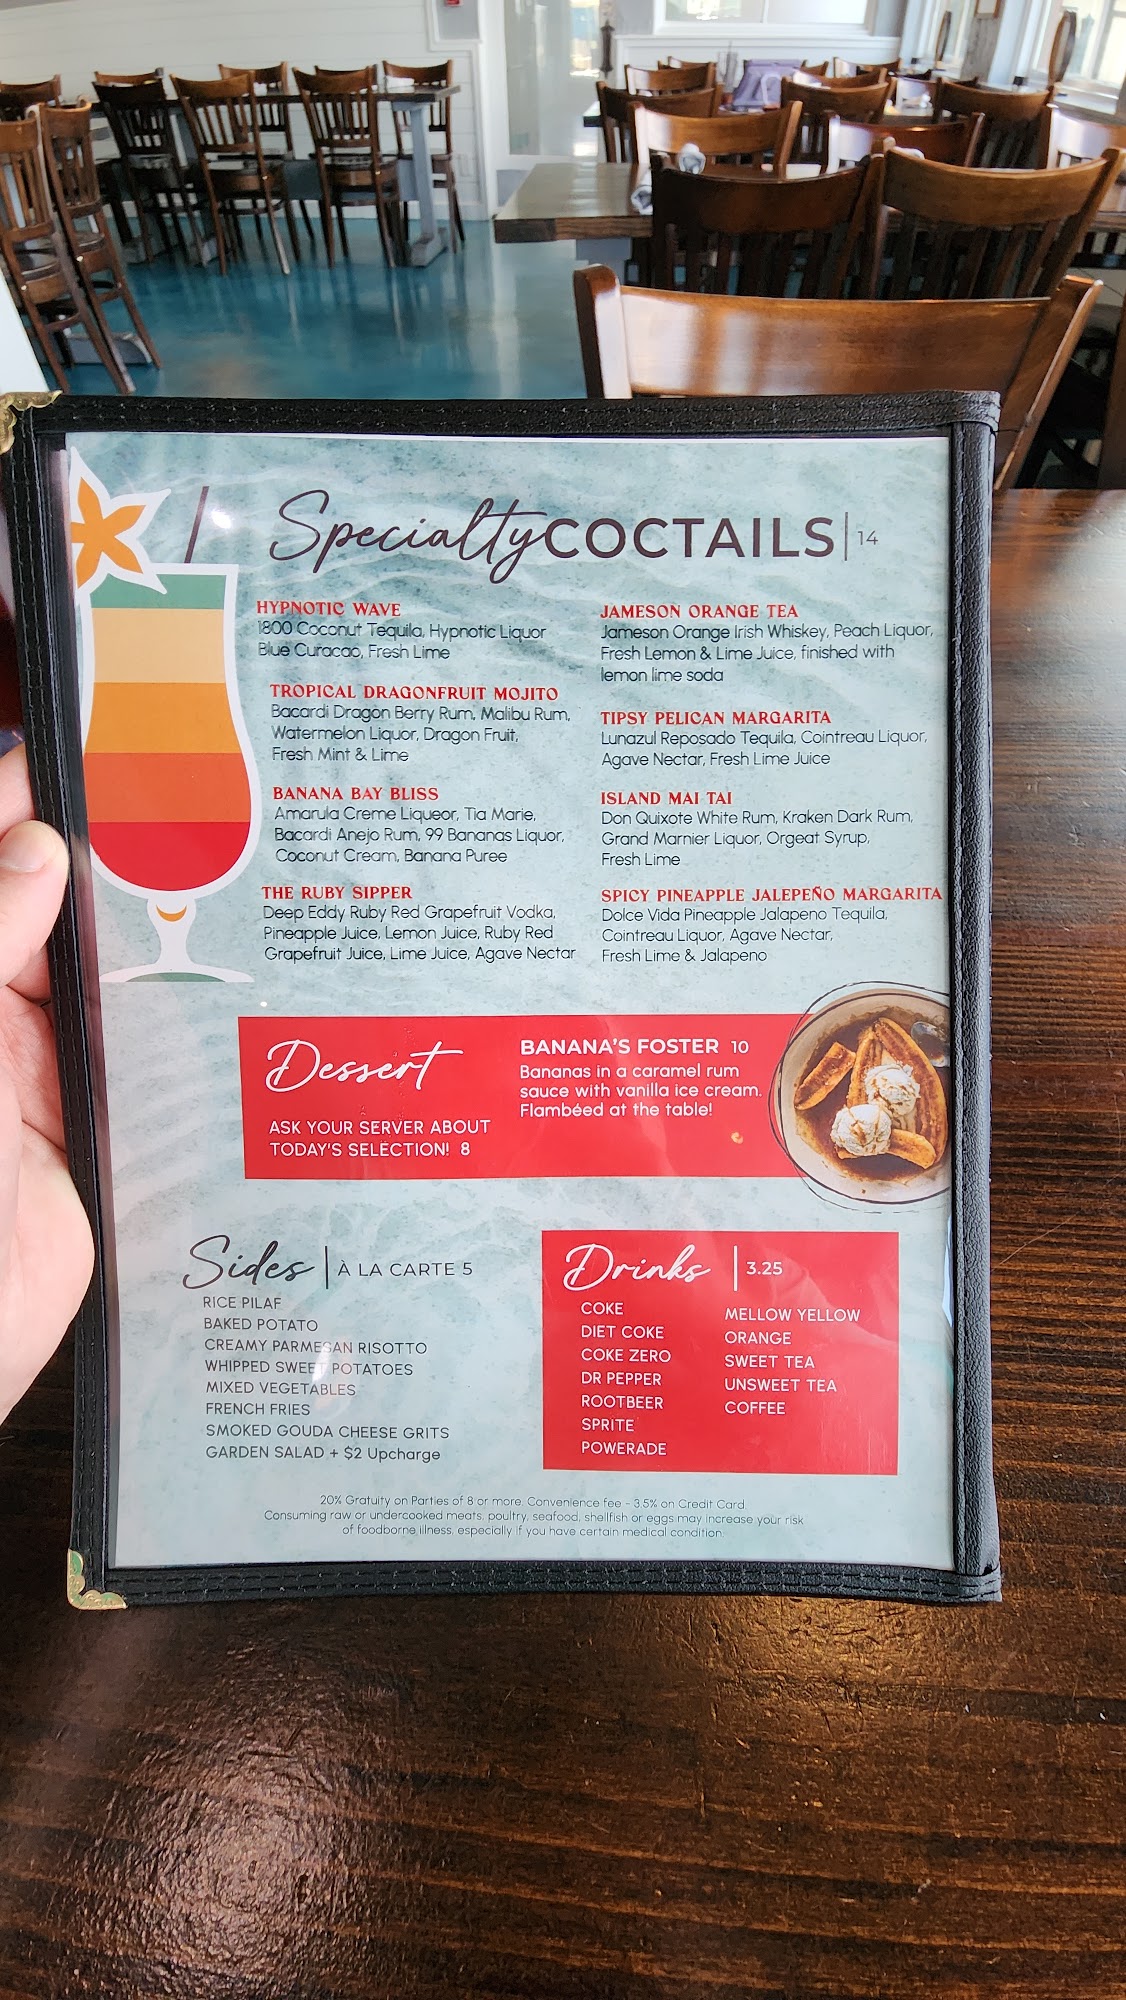 Specialty COCTAILS | 14
HYPNOTIC WAVE
1800 Coconut Tequila, Hypnotic Liquor
Blue Curacao, Fresh Lime
TROPICAL DRAGONFRUIT MOJITO
Bacardi Dragon Berry Rum, Malibu Rum,
Watermelon Liquor, Dragon Fruit,
Fresh Mint & Lime
BANANA BAY BLISS
Amarula Creme Liqueor, Tia Marie,
Bacardi Anejo Rum, 99 Bananas Liquor,
Coconut Cream, Banana Puree
THE RUBY SIPPER
Deep Eddy Ruby Red Grapefruit Vodka,
Pineapple Juice, Lemon Juice, Ruby Red
Grapefruit Juice, Lime Juice, Agave Nectar
JAMESON ORANGE TEA
Jameson Orange Irish Whiskey, Peach Liquor,
Fresh Lemon & Lime Juice, finished with
lemon lime soda
TIPSY PELICAN MARGARITA
Lunazul Reposado Tequila, Cointreau Liquor,
Agave Nectar, Fresh Lime Juice
ISLAND MAI TAI
Don Quixote White Rum, Kraken Dark Rum,
Grand Marnier Liquor, Orgeat Syrup,
Fresh Lime
SPICY PINEAPPLE JALEPEÑO MARGARITA
Dolce Vida Pineapple Jalapeno Tequila,
Cointreau Liquor, Agave Nectar,
Fresh Lime & Jalapeno
Dessert
ASK YOUR SERVER ABOUT
TODAY'S SELECTION! 8
BANANA'S FOSTER 10
Bananas in a caramel rum
sauce with vanilla ice cream.
Flambéed at the table!
Sides | À LA CARTE 5
RICE PILAF
BAKED POTATO
CREAMY PARMESAN RISOTTO
WHIPPED SWEET POTATOES
MIXED VEGETABLES
FRENCH FRIES
SMOKED GOUDA CHEESE GRITS
GARDEN SALAD + $2 Upcharge
Drinks | 3.25
COKE
DIET COKE
COKE ZERO
DR PEPPER
ROOTBEER
SPRITE
POWERADE
MELLOW YELLOW
ORANGE
SWEET TEA
UNSWEET TEA
COFFEE
20% Gratuity on Parties of 8 or more. Convenience fee - 3.5% on Credit Card
Consuming raw or undercooked meats, poultry, seafood, shellfish or eggs may increase your risk
of foodborne illness, especially if you have certain medical condition.